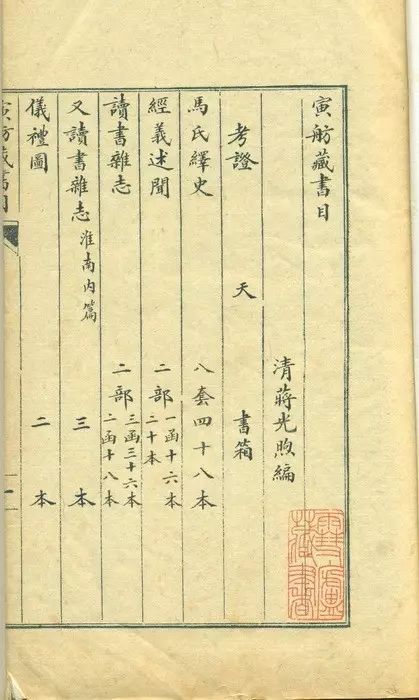 寅舫藏書目
清蔣光煦編
考證 天 書箱
馬氏繹史 八套四十八本
經義述聞 二部 一函十六本
二十本
讀書雜志 二部 三函三十六本
二函十八本
又讀書雜志 淮南內篇 三本
儀禮圖 二本
寅舫藏書目 一
藏書